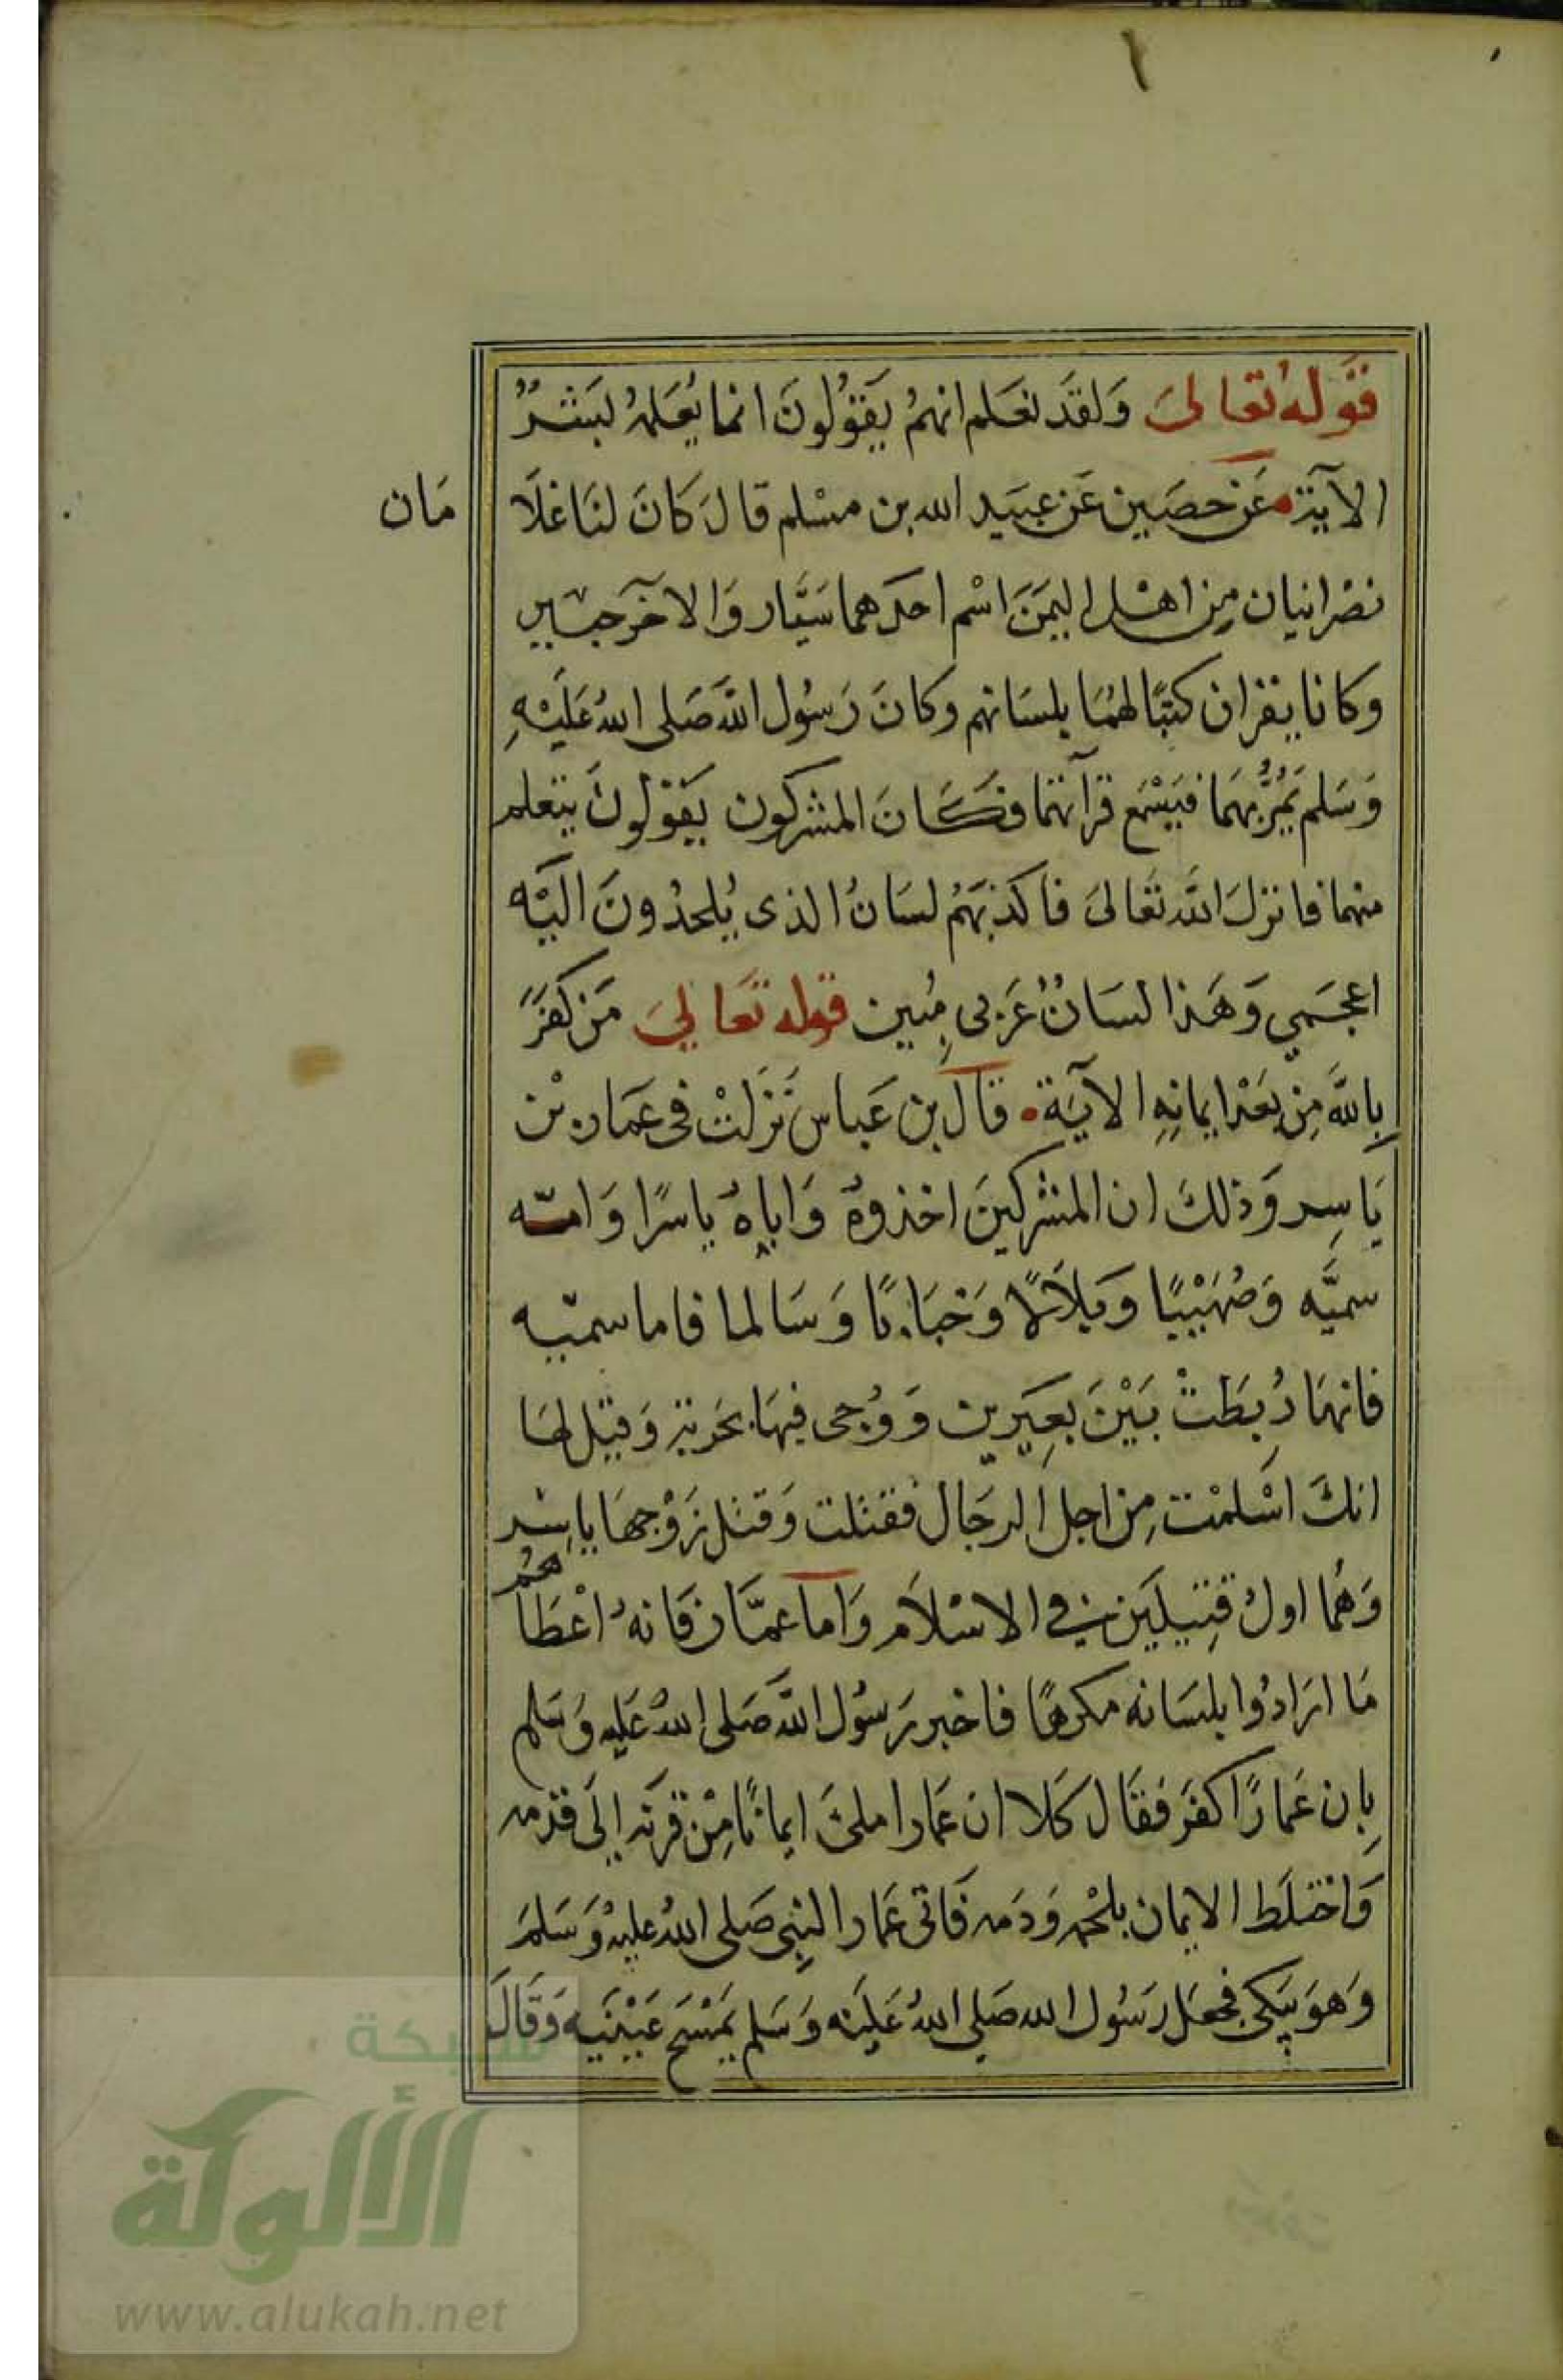 قوله تعالى ولقد نعلم انهم يقولون انما يعلمه بشر
الآية عن حصين عن عبيد الله بن مسلم قال كان لنا غلا مان
نصرانيان من اهل اليمن اسم احدهما سيار والاخر جبير
وكانا يقران كتبا لهما بلسانهم وكان رسول الله صلى الله عليه
وسلم يمر بهما فيسمع قرآتهما فكان المشركون يقولون يتعلم
منهما فانزل الله تعالى فاكذبهم لسان الذى يلحدون اليه
اعجمي وهذا لسان عربى مبين قوله تعالي من كفر
بالله من بعد ايمانه الآية قال بن عباس نزلت فى عمار بن
ياسر وذلك ان المشركين اخذوه واباه ياسرا وامه
سميه وصهيبا وبلالا وخبابا وسالما فاما سميه
فانها ربطت بين بعيرين ووجى فيها بحربة وقيل لها
انك اسلمت من اجل الرجال فقتلت وقتل زوجها ياسر
وهما اول قتيلين في الاسلام واما عمار فانه اعطا هم
ما ارادوا بلسانه مكرها فاخبر رسول الله صلى الله عليه وسلم
بان عمارا كفر فقال كلا ان عمارا ملئ ايمانا من قرنه الى قدمه
واختلط الايمان بلحمه ودمه فاتى عمار النبي صلى الله عليه وسلم
وهو يبكى فجعل رسول الله صلي الله عليه وسلم يمسح عينيه وقال
شبكة
الألوكة
www.alukah.net